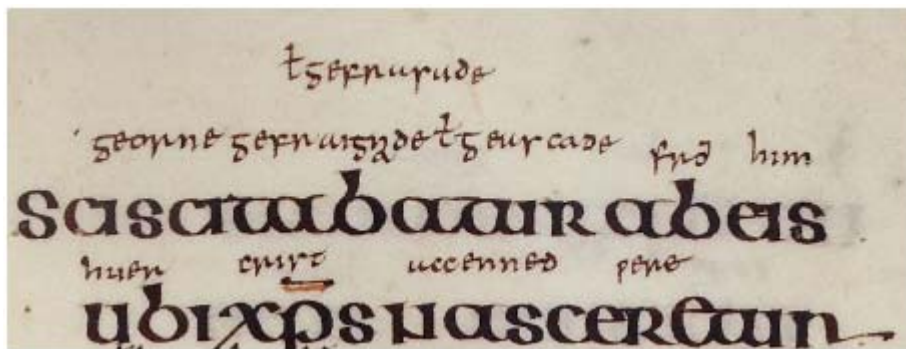 ł gefrasade
georne gefraignde ł geascade frō him
sciscitabatur ab eis
huer crist accenned ƿere
ubi xp̄s nasceretur